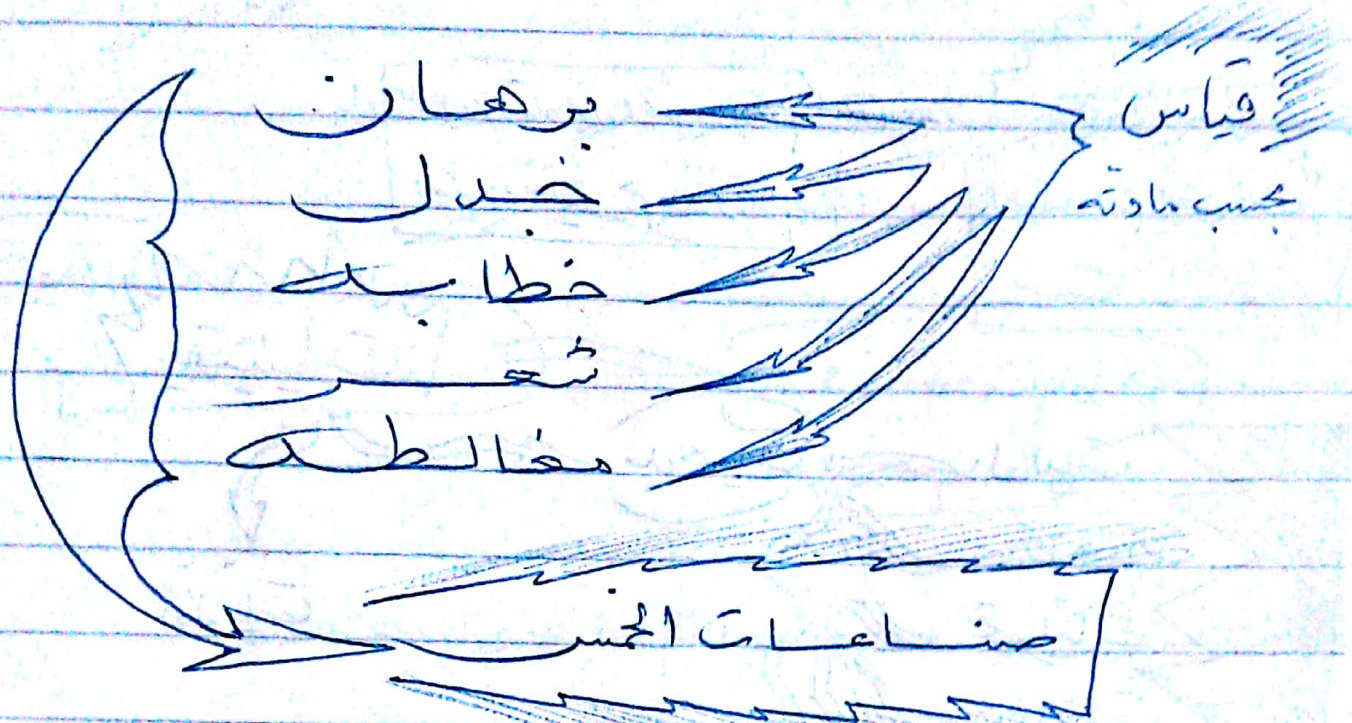 قياس
بحسب مادته
برهان
جدل
خطابه
شعر
مغالطه
صناعات الخمس